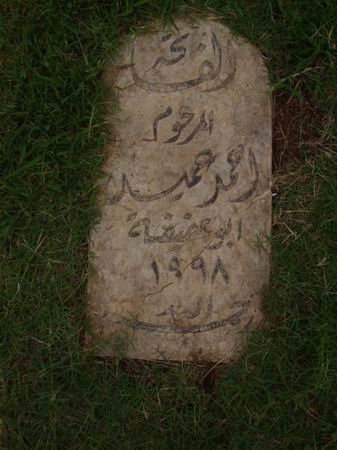 الفاتحة
المرحوم
احمد عميد
ابو عفيفة
١٩٩٨
رحمه الله